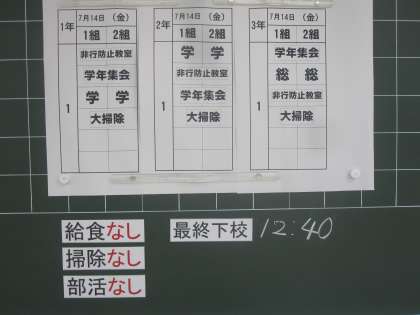 1年 7月14日 (金)
1組 2組
非行防止教室
学年集会
1 学 学
大掃除
2年 7月14日 (金)
1組 2組
学 学
非行防止教室
1 学年集会
大掃除
3年 7月14日 (金)
1組 2組
学年集会
総 総
1 非行防止教室
大掃除
給食なし 最終下校 12:40
掃除なし
部活なし